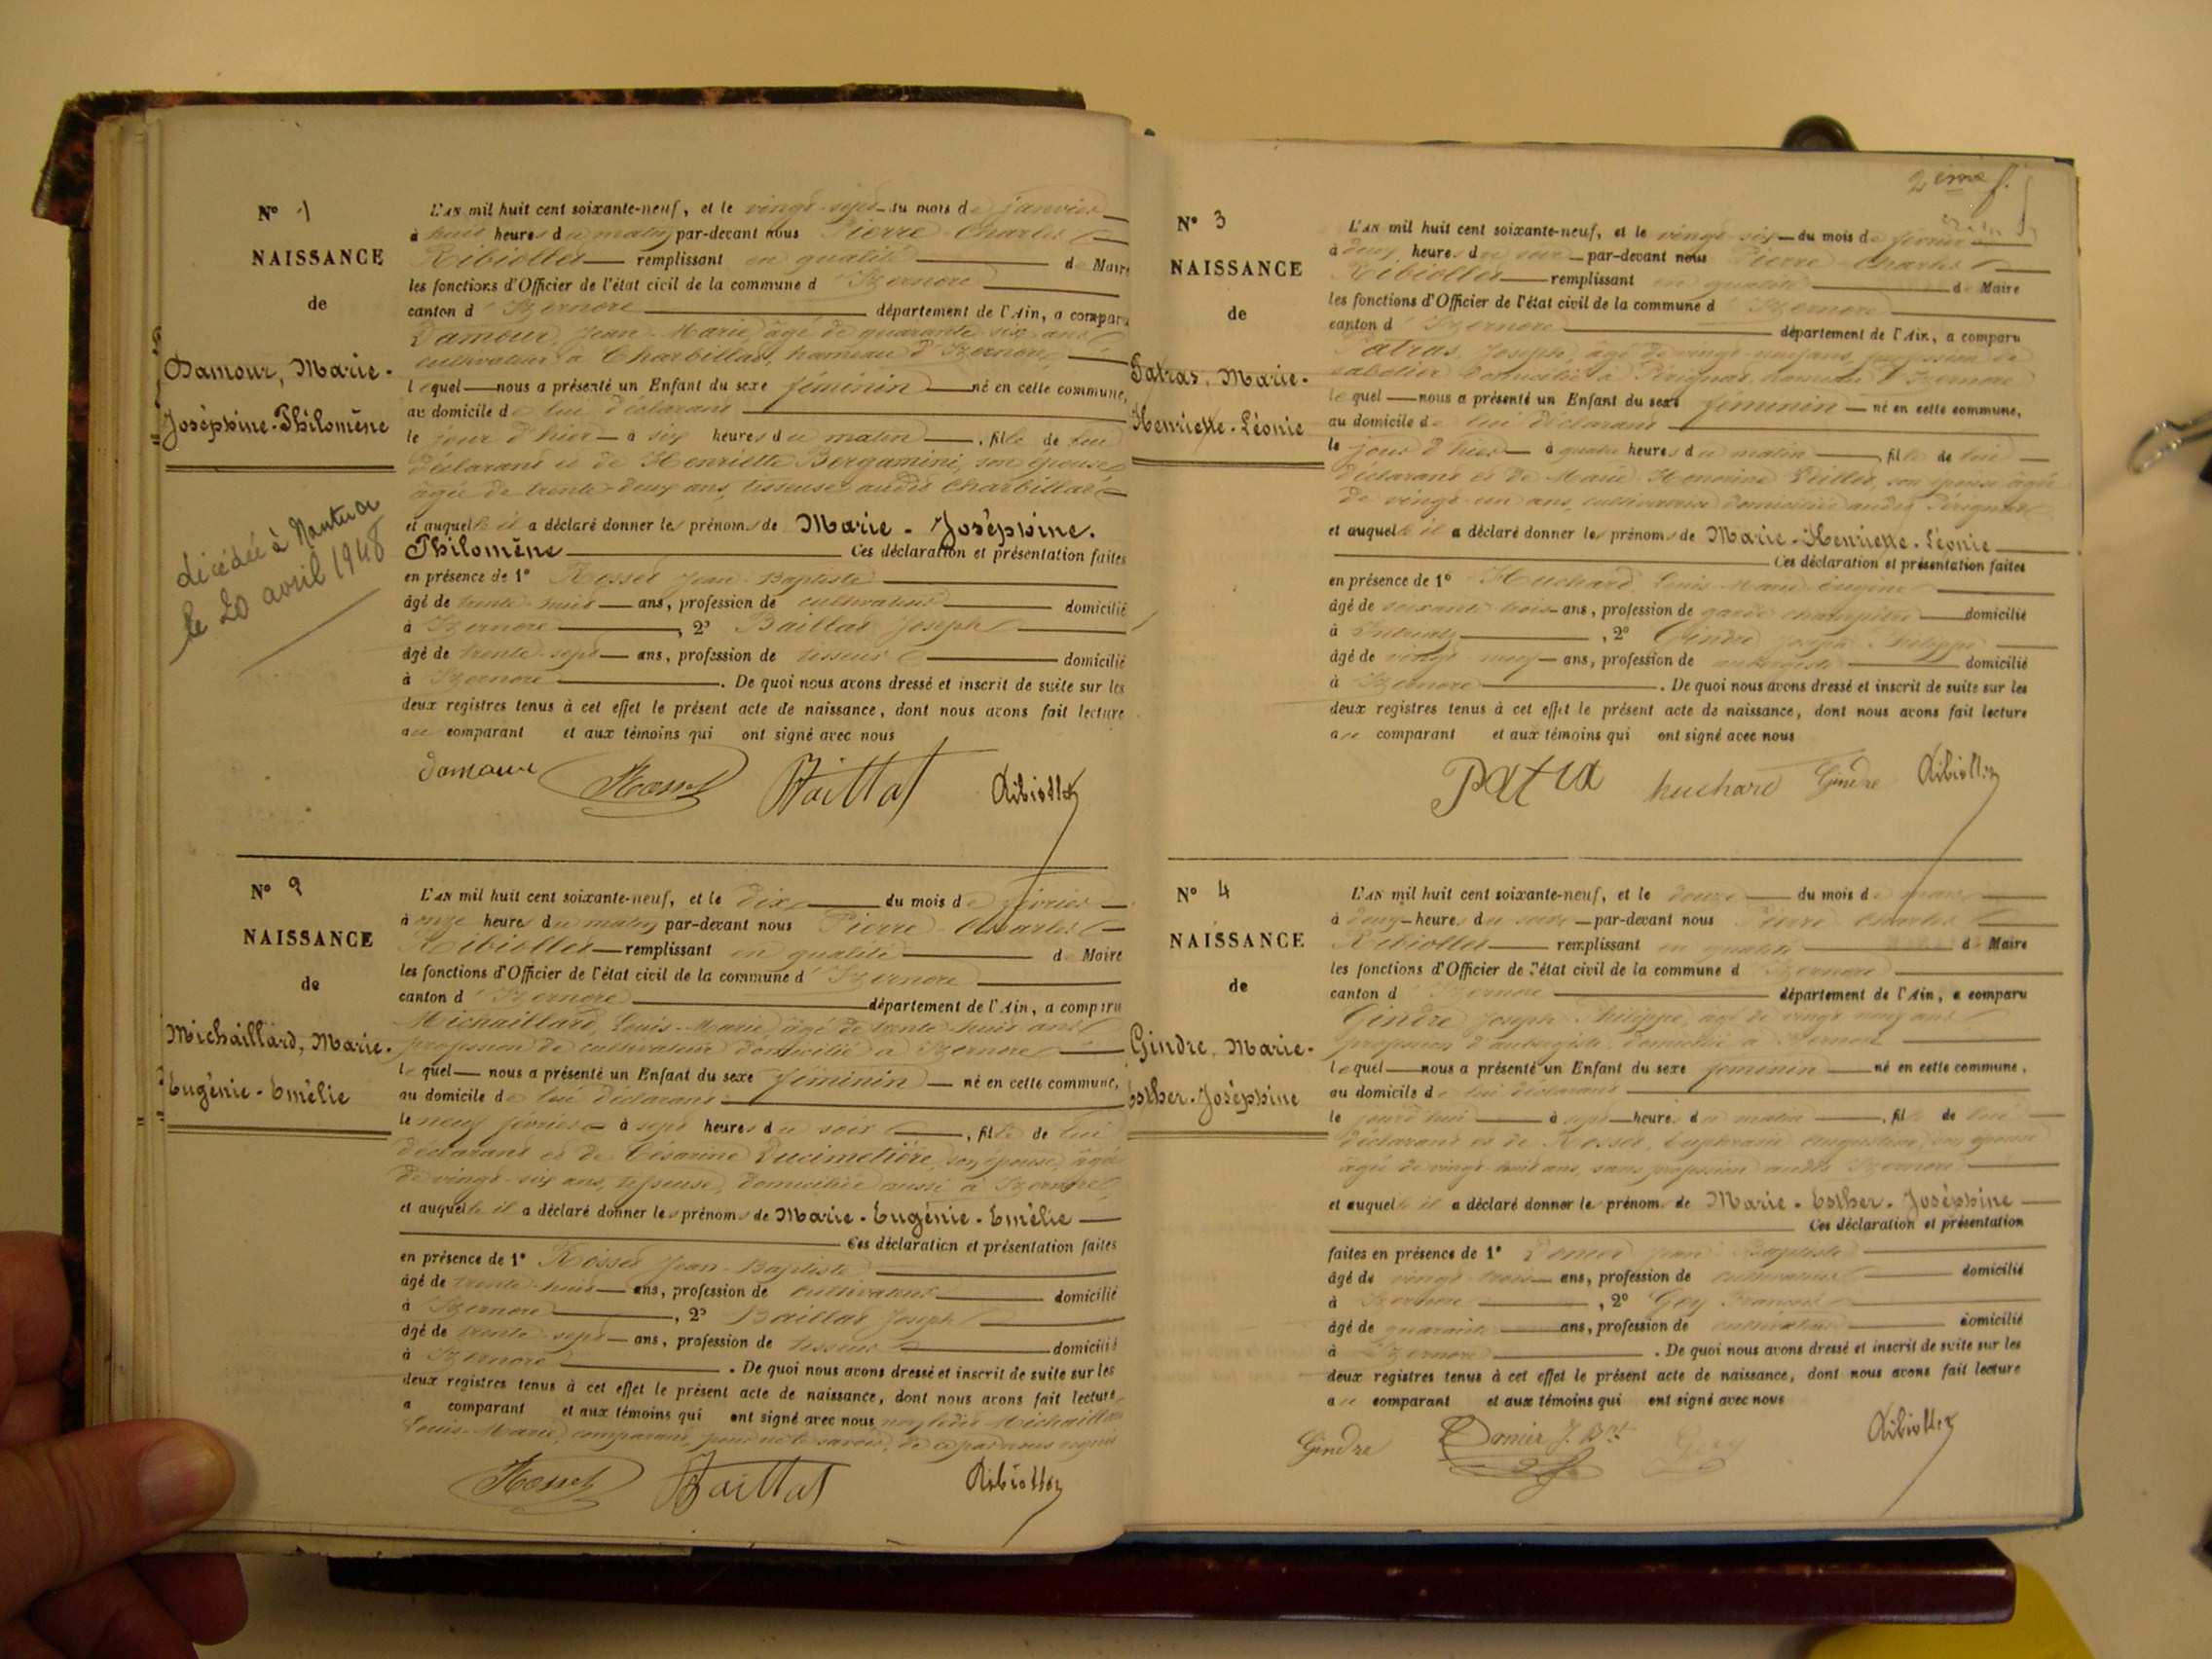 N° 1
NAISSANCE
de
Damour, Marie-
Joséphine-Philomène
décédée à Nantua
le 20 avril 1948
L'AN mil huit cent soixante-neuf, et le vingt-sept du mois de janvier
à huit heures du matin par-devant nous Pierre Charles
Ribiollet remplissant en qualité de Maire
les fonctions d'Officier de l'état civil de la commune d'Izernore
canton d'Izernore département de l'Ain, a comparu
Damour, Jean-Marie, âgé de quarante six ans
cultivateur à Charbillat, hameau d'Izernore,
lequel nous a présenté un Enfant du sexe féminin né en cette commune,
au domicile de lui déclarant
le jour d'hier à six heures du matin, fille de lui
déclarant et de Henriette Bergamini, son épouse
âgée de trente-deux ans, tisseuse audit Charbillat
et auquelle il a déclaré donner les prénoms de Marie-Joséphine-
Philomène Ces déclaration et présentation faites
en présence de 1° Rosset Jean-Baptiste
âgé de trente-huit ans, profession de cultivateur domicilié
à Izernore, 2° Baillat Joseph
âgé de trente-sept ans, profession de tisseur domicilié
à Izernore. De quoi nous avons dressé et inscrit de suite sur les
deux registres tenus à cet effet le présent acte de naissance, dont nous avons fait lecture
au comparant et aux témoins qui ont signé avec nous
Damour Rosset Baillat Ribiollet
N° 2
NAISSANCE
de
Michaillard, Marie-
Eugénie-Emélie
L'AN mil huit cent soixante-neuf, et le dix du mois de février
à onze heures du matin par-devant nous Pierre Charles
Ribiollet remplissant en qualité de Maire
les fonctions d'Officier de l'état civil de la commune d'Izernore
canton d'Izernore département de l'Ain, a comparu
Michaillard, Louis-Marie, âgé de trente-huit ans
profession de cultivateur domicilié à Izernore
lequel nous a présenté un Enfant du sexe féminin né en cette commune,
au domicile de lui déclarant
le neuf février à sept heures du soir, fille de lui
déclarant et de Césarine Ducimetière, son épouse, âgée
de vingt-six ans, tisseuse, domiciliée aussi à Izernore,
et auquelle il a déclaré donner les prénoms de Marie-Eugénie-Emélie
Ces déclaration et présentation faites
en présence de 1° Rosset Jean-Baptiste
âgé de trente-huit ans, profession de cultivateur domicilié
à Izernore, 2° Baillat Joseph
âgé de trente-sept ans, profession de tisseur domicilié
à Izernore. De quoi nous avons dressé et inscrit de suite sur les
deux registres tenus à cet effet le présent acte de naissance, dont nous avons fait lecture
a comparant et aux témoins qui ont signé avec nous Michaillard
Louis-Marie, comparant, pour ne le savoir, de ce par nous requis
Rosset Baillat Ribiollet
2ème f.
N° 3
NAISSANCE
de
Patras, Marie-
Henriette-Léonie
L'AN mil huit cent soixante-neuf, et le vingt-six du mois de février
à deux heures du soir par-devant nous Pierre Charles
Ribiollet remplissant en qualité de Maire
les fonctions d'Officier de l'état civil de la commune d'Izernore
canton d'Izernore département de l'Ain, a comparu
Patras, Joseph, âgé de vingt-neuf ans, profession de
sabotier domicilié à Pérignat, hameau d'Izernore
lequel nous a présenté un Enfant du sexe féminin né en cette commune,
au domicile de lui déclarant
le jour d'hier à quatre heures du matin, fille de lui
déclarant et de Marie Honorine Veillet, son épouse âgée
de vingt-un ans, cultivatrice domiciliée audit Pérignat
et auquelle il a déclaré donner les prénoms de Marie-Henriette-Léonie
Ces déclaration et présentation faites
en présence de 1° Huchard, Louis-Marie Eugène
âgé de soixante trois ans, profession de garde champêtre domicilié
à, 2° Gindre Joseph Philippe
âgé de vingt-neuf ans, profession de aubergiste domicilié
à Izernore. De quoi nous avons dressé et inscrit de suite sur les
deux registres tenus à cet effet le présent acte de naissance, dont nous avons fait lecture
au comparant et aux témoins qui ont signé avec nous
huchard Gindre Ribiollet
N° 4
NAISSANCE
de
Gindre, Marie-
Esther-Joséphine
L'AN mil huit cent soixante-neuf, et le douze du mois de mars
à deux heures du soir par-devant nous Pierre Charles
Ribiollet remplissant en qualité de Maire
les fonctions d'Officier de l'état civil de la commune d'Izernore
canton d'Izernore département de l'Ain, a comparu
Gindre Joseph Philippe, âgé de vingt neuf ans
profession d'aubergiste domicilié à Izernore
lequel nous a présenté un Enfant du sexe féminin né en cette commune,
au domicile de lui déclarant
le à sept heures du matin, fille de lui
déclarant et de Rosset, Euphrasie Augustine, son épouse
âgée de vingt-huit ans, sans profession audit Izernore
et auquelle il a déclaré donner le prénom de Marie-Esther-Joséphine
Ces déclaration et présentation
faites en présence de 1° Jean Baptiste
âgé de vingt trois ans, profession de cultivateur domicilié
à Izernore, 2° Goy François
âgé de quarante ans, profession de cultivateur domicilié
à Izernore. De quoi nous avons dressé et inscrit de suite sur les
deux registres tenus à cet effet le présent acte de naissance, dont nous avons fait lecture
au comparant et aux témoins qui ont signé avec nous
Gindre J. Bte Goy Ribiollet